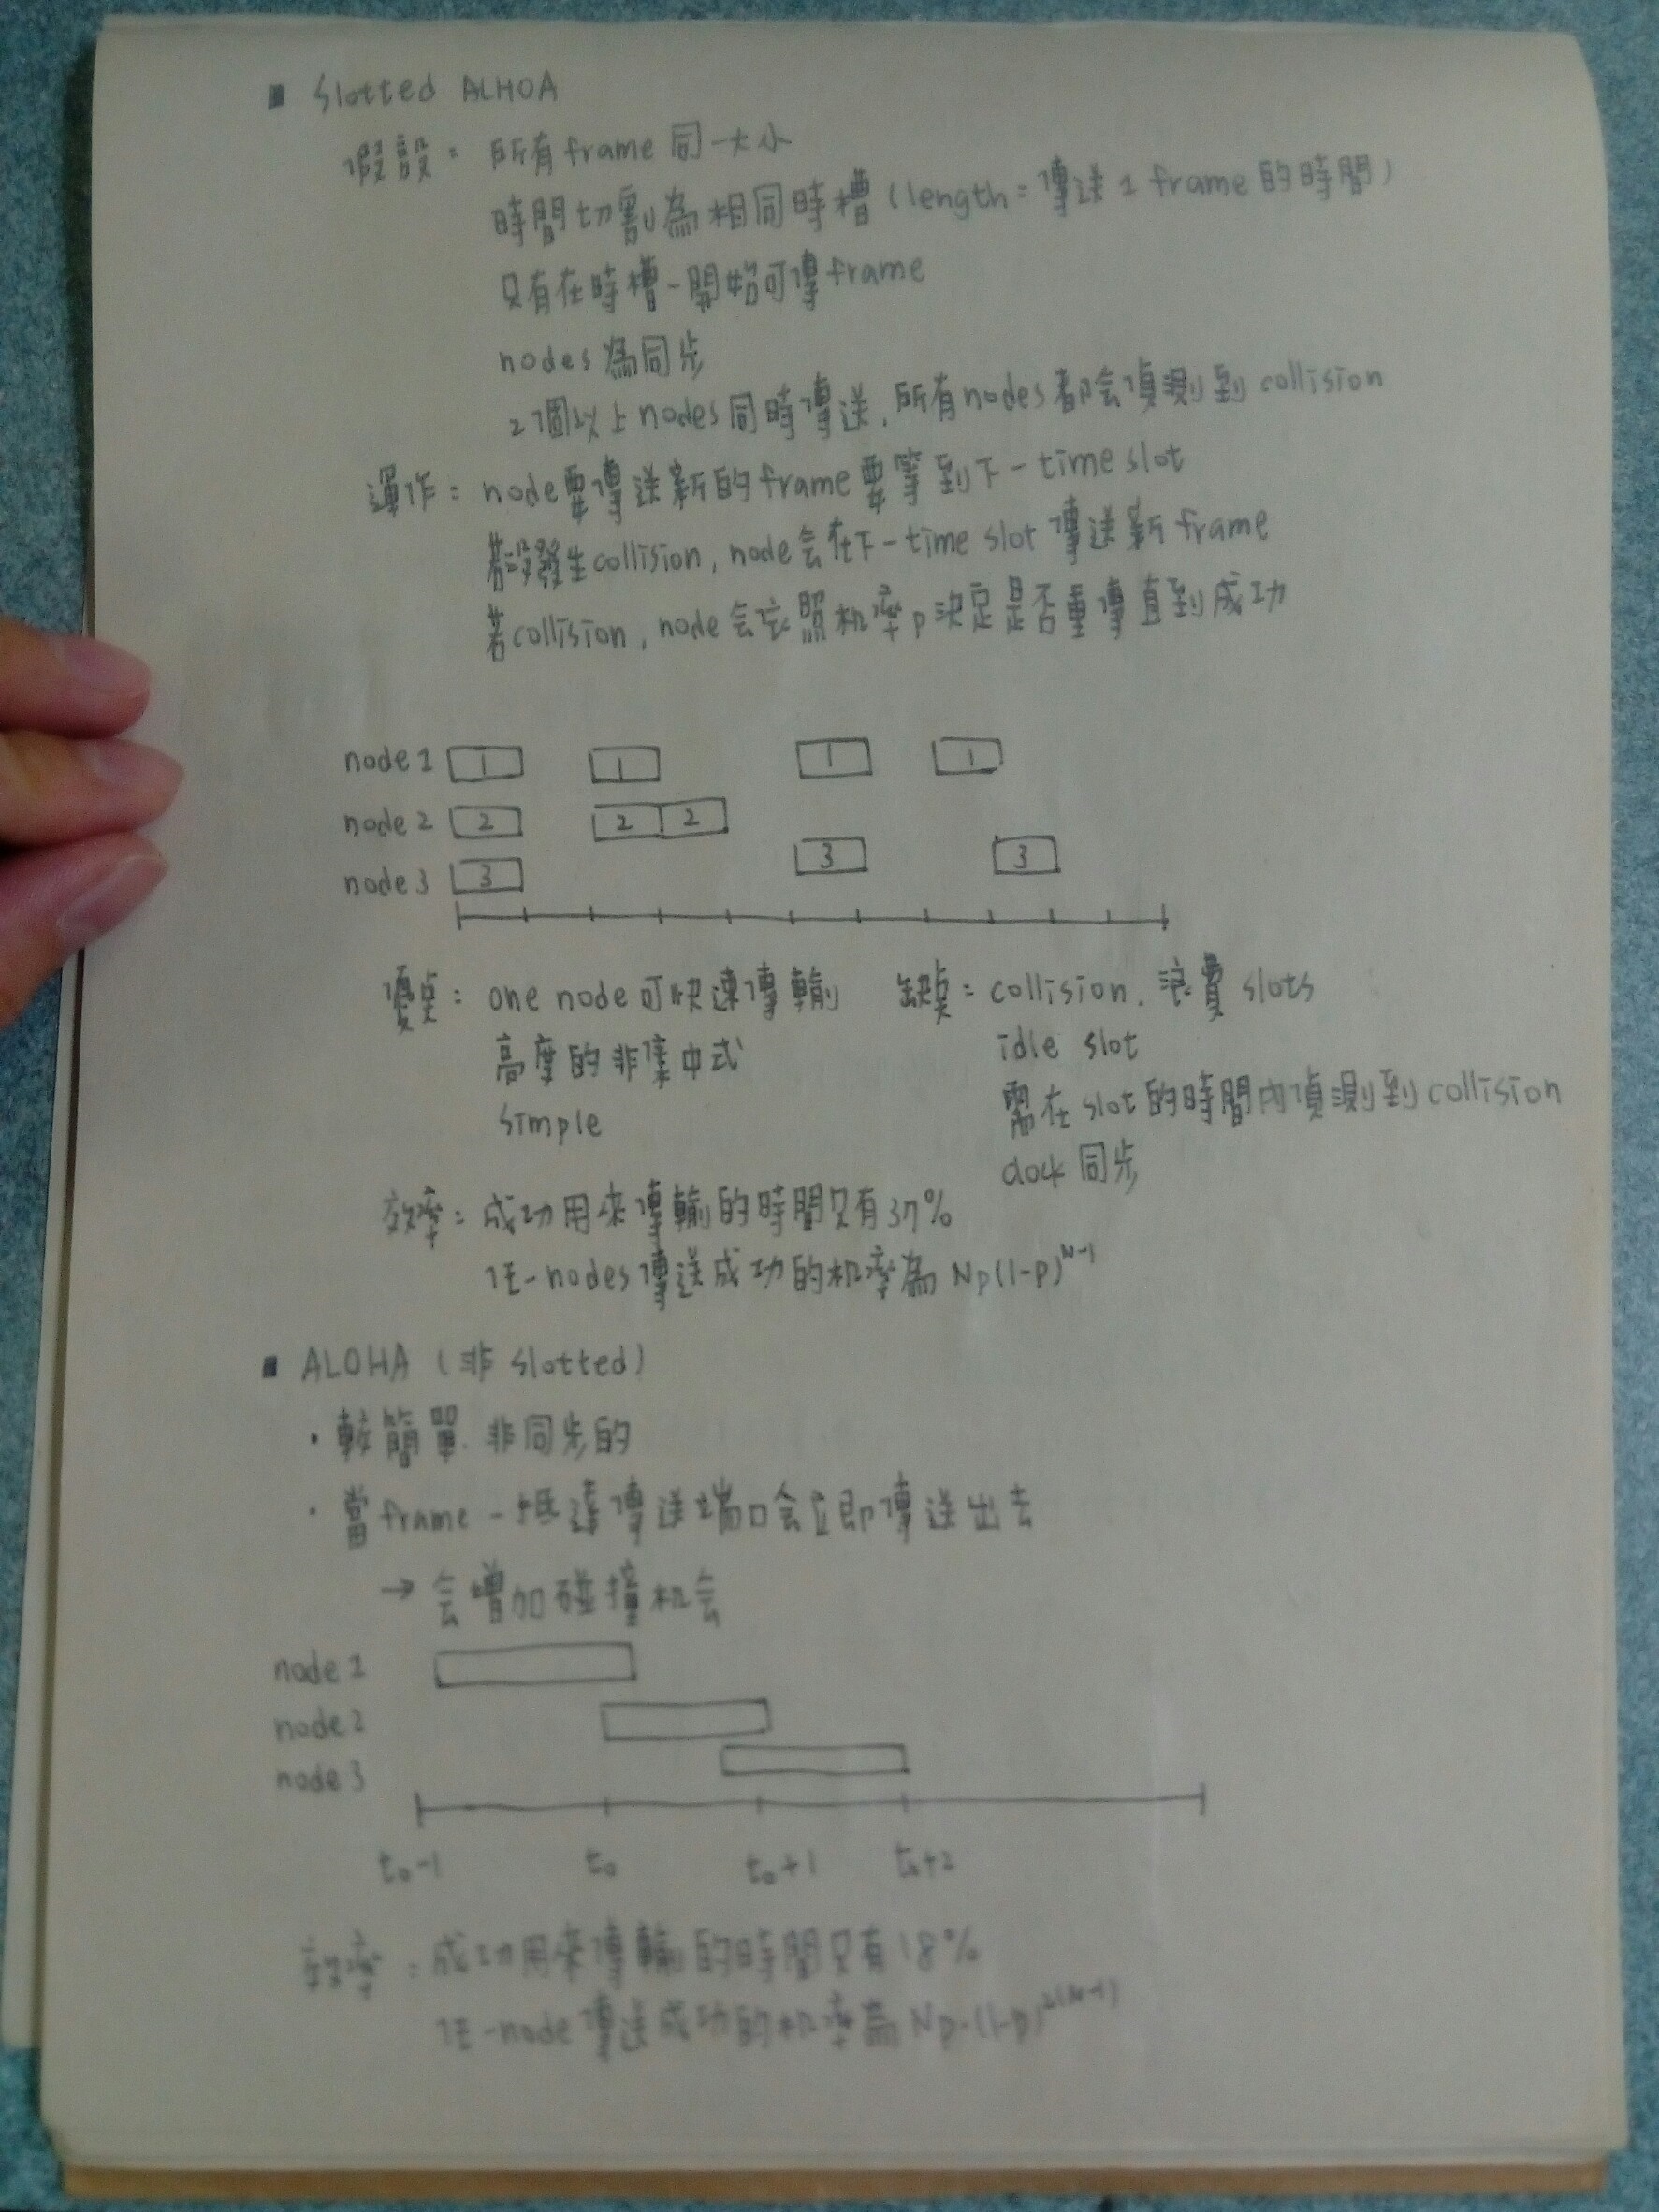 ▪ Slotted ALHOA
假設: 所有frame同一大小
時間切割為相同時槽(length=傳送1 frame的時間)
只有在時槽一開始可傳frame
nodes為同步
2個以上nodes同時傳送,所有nodes都会偵測到collision
運作: node要傳送新的frame要等到下一time slot
若沒發生collision, node会在下一time slot傳送新frame
若collision, node会依照机率p決定是否重傳直到成功
node1 1 1 1 1
node2 2 2 2
node3 3 3 3
優点: one node可快速傳輸
高度的非集中式
simple
缺点: collision, 浪費slots
idle slot
需在slot的時間內偵測到collision
clock同步
效率: 成功用來傳輸的時間只有37%
任一nodes傳送成功的机率為Np(1-p)^{N-1}
▪ ALOHA (非slotted)
· 較簡單. 非同步的
· 當frame一抵達傳送端口会立即傳送出去
→ 会增加碰撞机会
node1
node2
node3
t₀-1 t₀ t₀+1 t₀+2
效率: 成功用來傳輸的時間只有18%
任一node傳送成功的机率為Np·(1-p)^{2(N-1)}